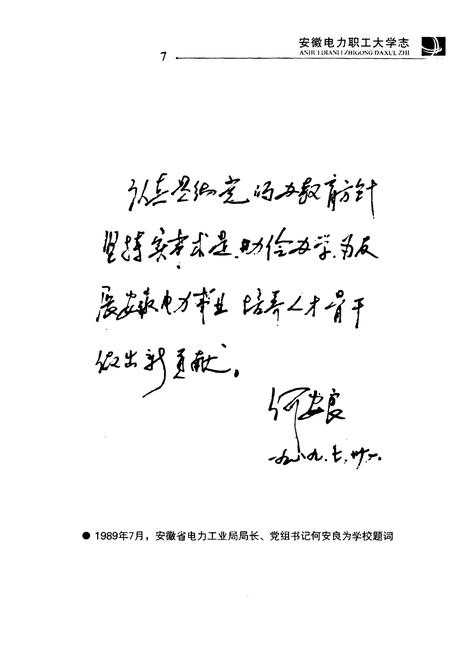 安徽电力职工大学志
ANHUI DIANLI ZHIGONG DAXUE ZHI
7
认真贯彻党的办教育方针
坚持实事求是、勤俭办学、为发
展安徽电力事业 培养人才骨干
做出新贡献。
何安良
一九八九.七.
● 1989年7月，安徽省电力工业局局长、党组书记何安良为学校题词